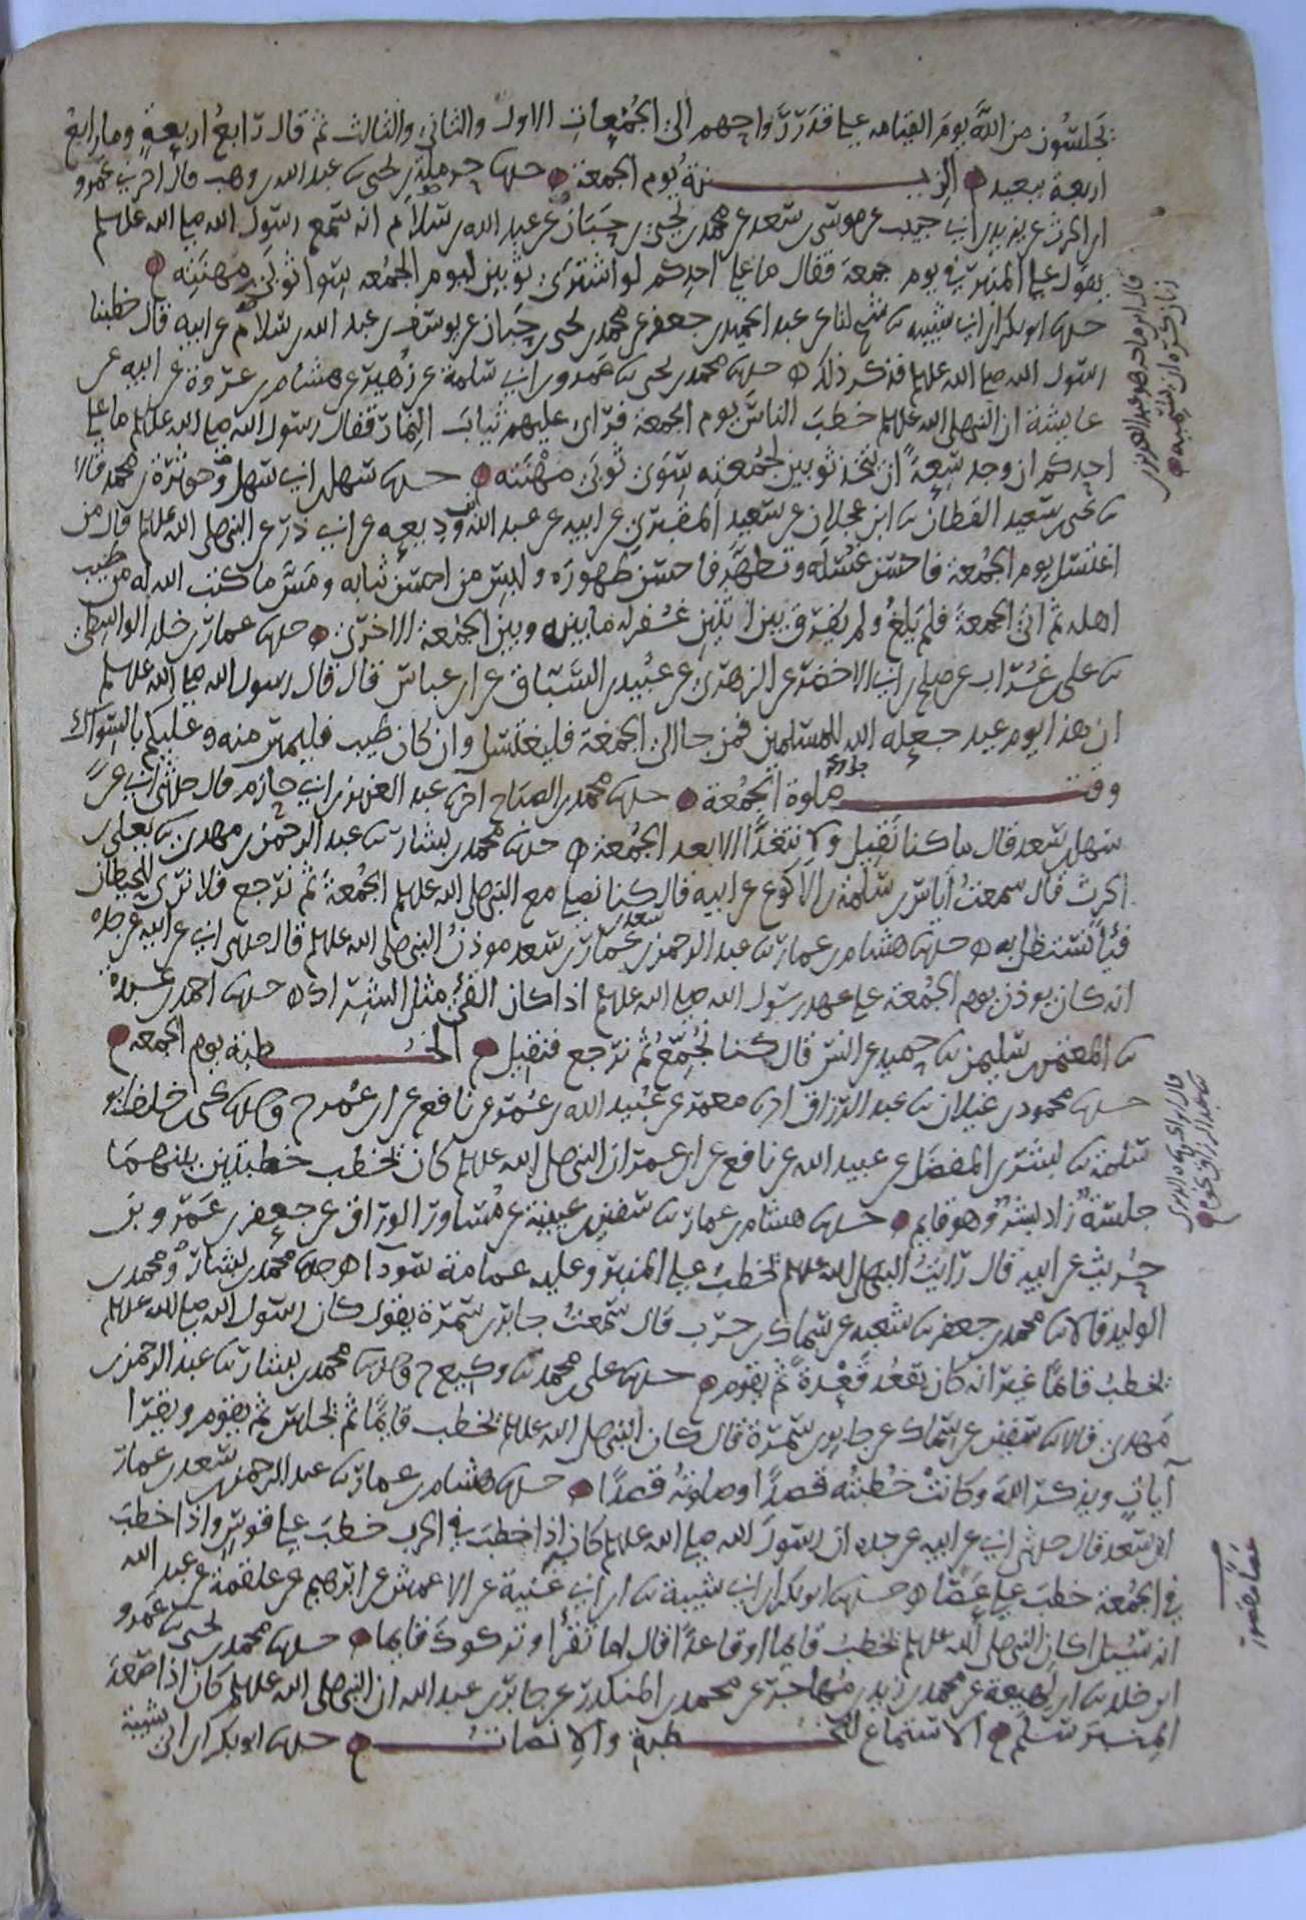 يجلسون من الله يوم القيامه على قدر رواحهم الى الجمعات الاول والثاني والثالث ثم قال رابع اربعة وما رابع
اربعة ببعيد الزينة يوم الجمعة حدثنا حرملة بن يحيى ثنا عبد الله بن وهب قال اخبرني عمرو
ابن الحرث عن يزيد بن ابي حبيب عن موسى بن سعد عن محمد بن يحيى بن حبان عن عبد الله بن سلام انه سمع رسول الله صلى الله عليه وسلم
يقول على المنبر في يوم جمعة فقال ما على احدكم لو اشترى ثوبين ليوم الجمعه سوا ثوبي مهنته
حدثنا ابو بكر بن ابي شيبه ثنا شيخ لنا عن عبد الحميد بن جعفر عن محمد بن يحيى بن حبان عن يوسف بن عبد الله بن سلام عن ابيه قال خطبنا
رسول الله صلى الله عليه وسلم فذكر ذلك حدثنا محمد بن يحيى ثنا عمرو بن ابي سلمة عن زهير عن هشام بن عروة عن ابيه عن
عايشة ان النبي صلى الله عليه وسلم خطب الناس يوم الجمعة فراى عليهم ثياب النمار فقال رسول الله صلى الله عليه وسلم ما على
احدكم ان وجد سعة ان يتخذ ثوبين لجمعته سوى ثوبي مهنته حدثنا سهل بن ابي سهل وحوثرة بن محمد قالا
ثنا يحيى بن سعيد القطان ثنا ابن عجلان عن سعيد المقبري عن ابيه عن عبد الله بن وديعه عن ابي ذر عن النبي صلى الله عليه وسلم قال من
اغتسل يوم الجمعة فاحسن غسله وتطهر فاحسن طهوره ولبس من احسن ثيابه ومس ما كتب الله له من طيب
اهله ثم اتى الجمعة فلم يلغ ولم يفرق بين اثنين غفر له ما بينه وبين الجمعة الاخرى حدثنا عمار بن خلد الواسطي
ثنا على بن غراب عن صالح بن ابي الاخضر عن الزهري عن عبيد بن السباق عن ابن عباس قال قال رسول الله صلى الله عليه وسلم
ان هذا يوم عيد جعله الله للمسلمين فمن جا الى الجمعة فليغتسل وان كان طيب فليمس منه وعليكم بالسواك
وقت صلوة الجمعة حدثنا محمد بن الصباح اخبرنا عبد العزيز بن ابي حازم قال حدثني ابي عن
سهل بن سعد قال ما كنا نقيل ولا نتغدا الا بعد الجمعة حدثنا محمد بن بشار ثنا عبد الرحمن بن مهدي ثنا يعلى بن
الحرث قال سمعت اياس بن سلمة بن الاكوع عن ابيه قال كنا نصلي مع النبي صلى الله عليه وسلم الجمعة ثم نرجع فلا نرى للحيطان
فيئا نستظل به حدثنا هشام بن عمار ثنا عبد الرحمن بن سعد بن عمار بن سعد موذن النبي صلى الله عليه وسلم قال حدثني ابي عن ابيه عن جده
انه كان يوذن يوم الجمعة على عهد رسول الله صلى الله عليه وسلم اذا كان الفي مثل الشراك حدثنا احمد بن عبدة
ثنا المعتمر بن سليمن ثنا حميد عن انس قال كنا نجمع ثم نرجع فنقيل الخطبة يوم الجمعه
حدثنا محمود بن غيلان ثنا عبد الرزاق اخبرنا معمر عن عبيد الله بن عمر عن نافع عن ابن عمر ح وحدثنا يحيى بن خلف ابو
سلمة ثنا بشر بن المفضل عن عبيد الله عن نافع عن ابن عمر ان النبي صلى الله عليه وسلم كان يخطب خطبتين بينهما
جلسة زاد بشر وهو قايم حدثنا هشام بن عمار ثنا سفين بن عيينة عن مساور الوراق عن جعفر بن عمرو بن
حريث عن ابيه قال رايت النبي صلى الله عليه وسلم يخطب على المنبر وعليه عمامة سودا حدثنا محمد بن بشار ومحمد بن
الوليد قالا ثنا محمد بن جعفر ثنا شعبة عن سماك بن حرب قال سمعت جابر بن سمرة يقول كان رسول الله صلى الله عليه وسلم
يخطب قائما غير انه كان يقعد قعدة ثم يقوم حدثنا على بن محمد ثنا وكيع ح وحدثنا محمد بن بشار ثنا عبد الرحمن بن
مهدي قالا ثنا سفين عن سماك عن جابر بن سمرة قال كان النبي صلى الله عليه وسلم يخطب قايما ثم يجلس ثم يقوم ويقرا
آيات ويذكر الله وكانت خطبته قصدا وصلوته قصدا حدثنا هشام بن عمار ثنا عبد الرحمن بن سعد بن عمار
ابن سعد قال حدثني ابي عن ابيه عن جده ان رسول الله صلى الله عليه وسلم كان اذا خطب في الحرب خطب على قوس واذا خطب
في الجمعة خطب على عصا حدثنا ابو بكر بن ابي شيبة ثنا ابن ابي غنية عن الاعمش عن ابرهيم عن علقمة عن عبد الله
انه سيل اكان النبي صلى الله عليه وسلم يخطب قايما او قاعدا قال اما تقرا وتركوك قايما حدثنا محمد بن يحيى ثنا عمرو
ابن خلد ثنا ابن لهيعة عن محمد بن زيد بن مهاجر عن محمد بن المنكدر عن جابر بن عبد الله ان النبي صلى الله عليه وسلم كان اذا صعد
المنبر سلم الاستماع للخطبة والانصات حدثنا ابو بكر بن ابي شيبة
عصا مقصور